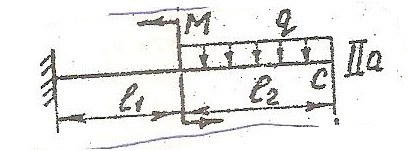 M q
IIa
C
l₁ l₂